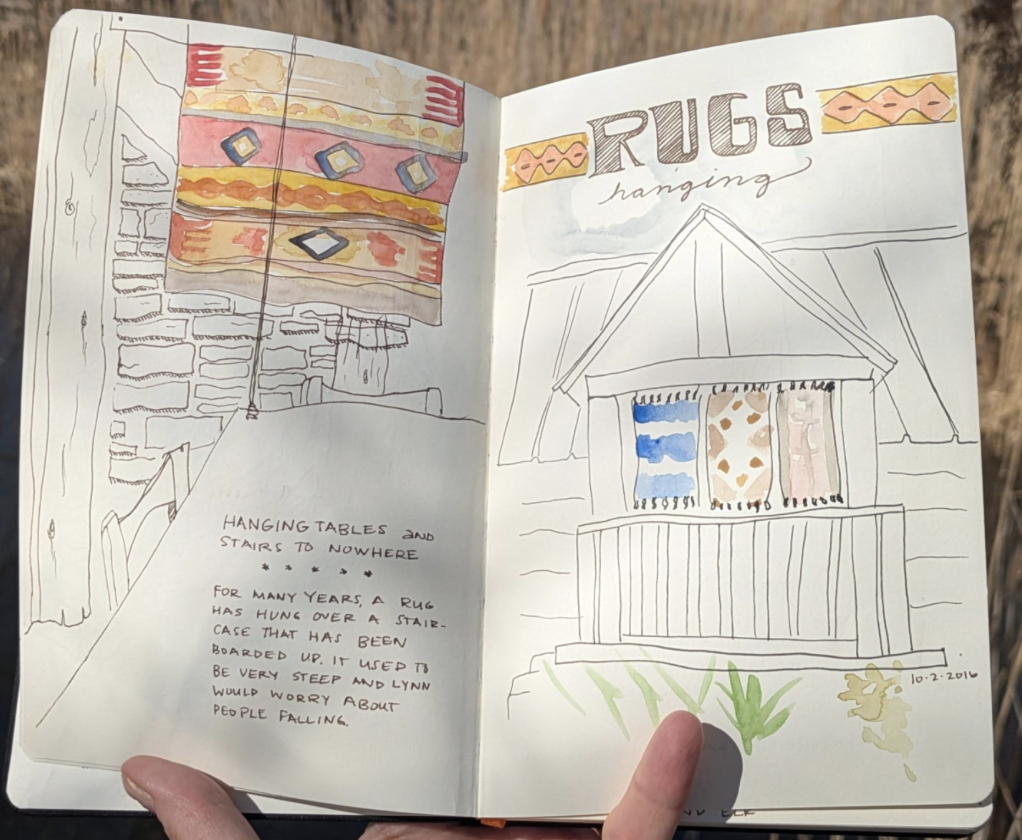 HANGING TABLES and
STAIRS TO NOWHERE
* * * * *
FOR MANY YEARS, A RUG
HAS HUNG OVER A STAIR-
CASE THAT HAS BEEN
BOARDED UP. IT USED TO
BE VERY STEEP AND LYNN
WOULD WORRY ABOUT
PEOPLE FALLING.
RUGS
hanging
10.2.2016